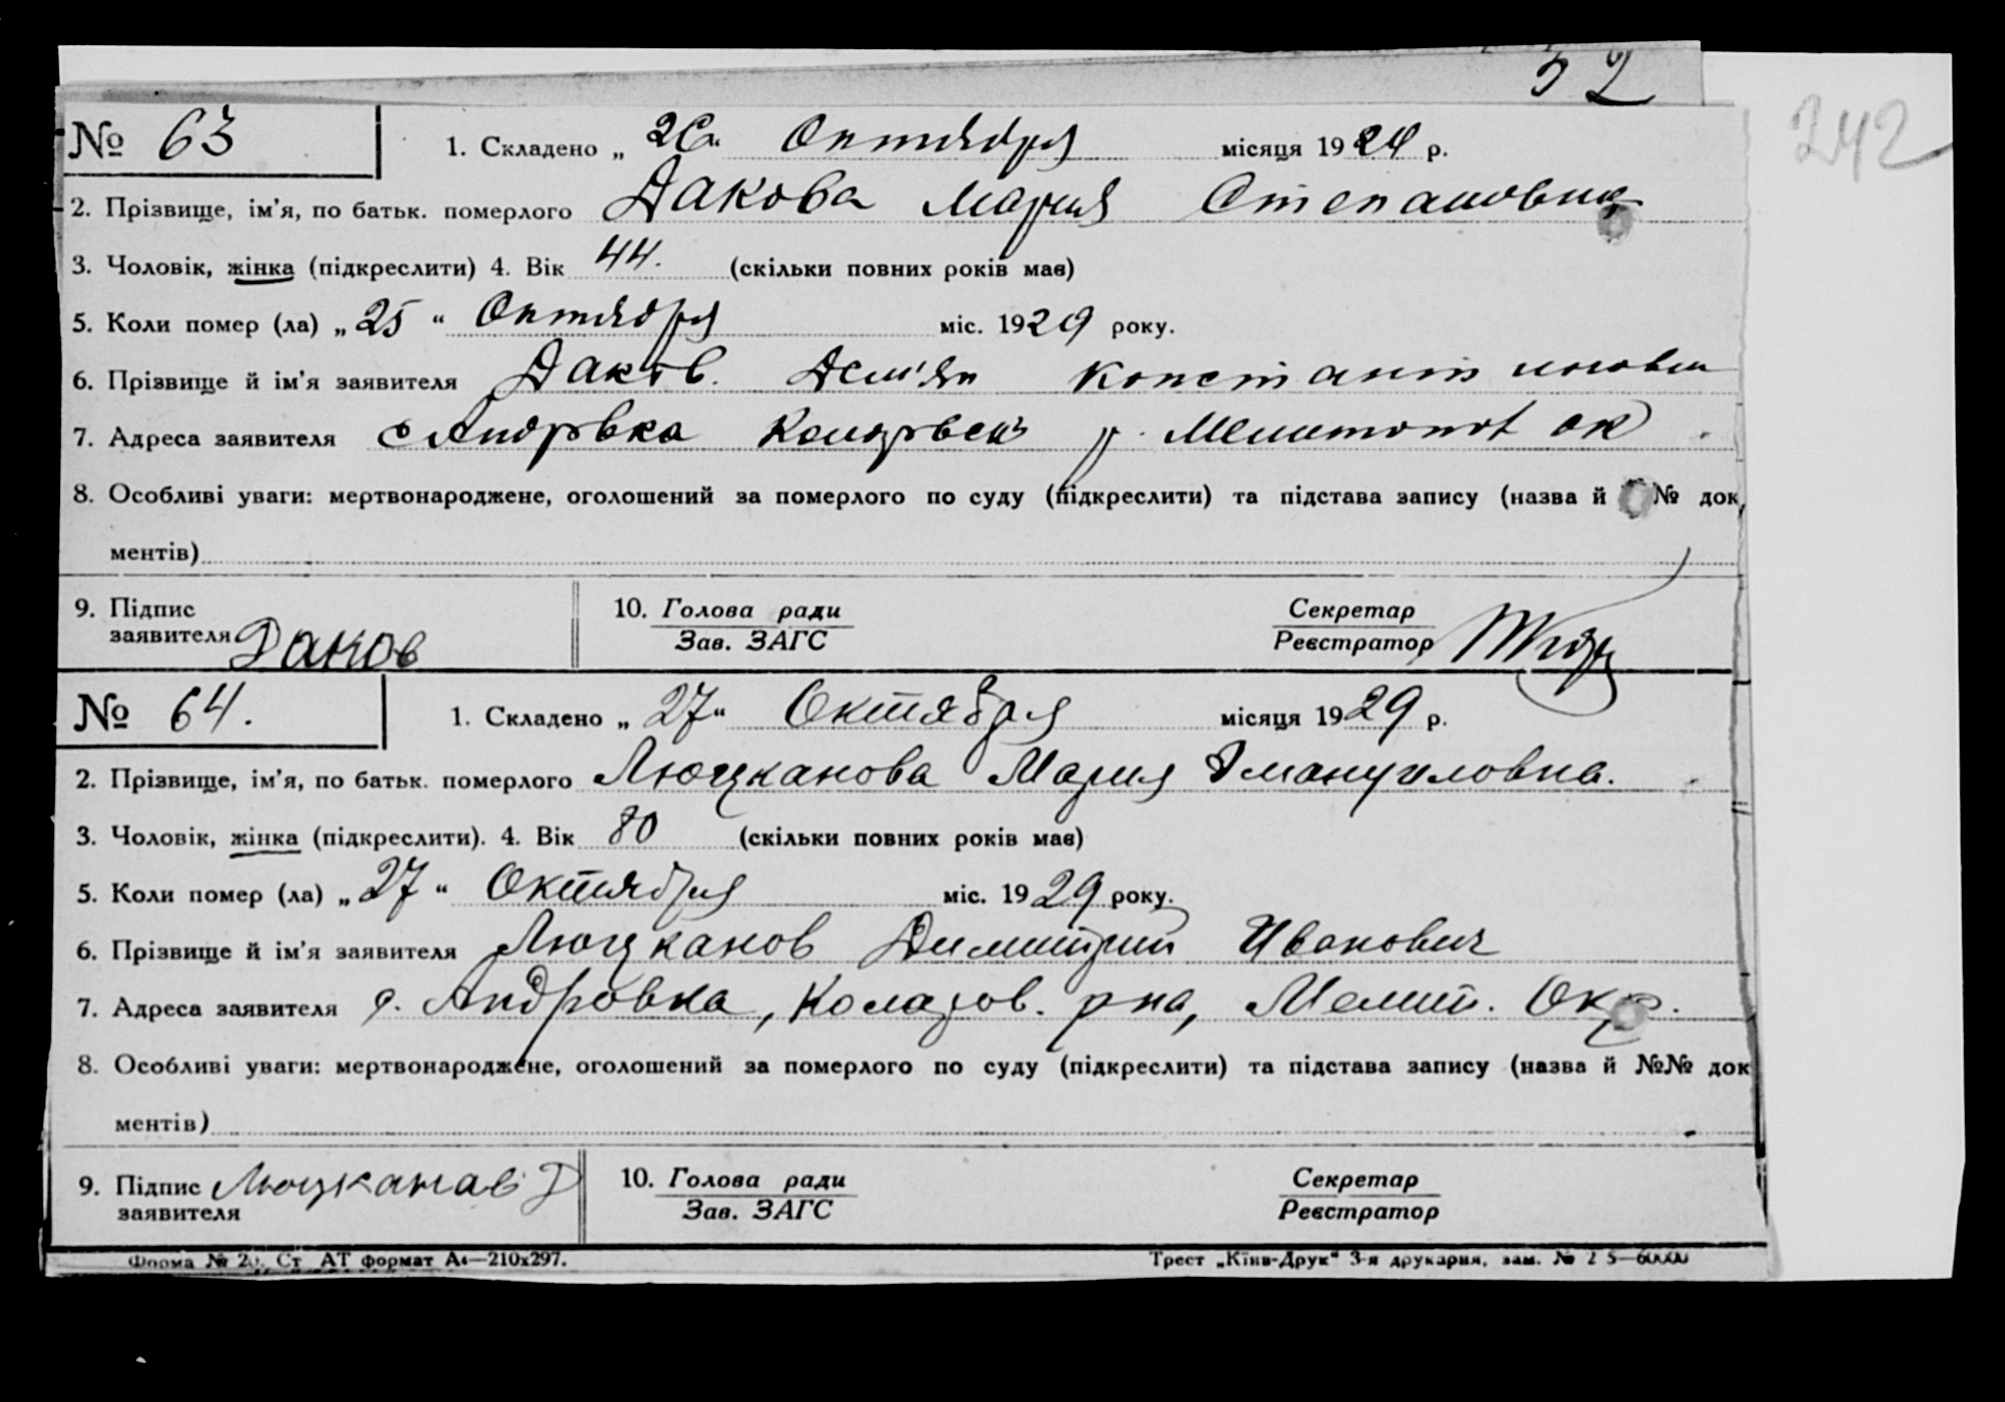 52
242
№ 63
1. Складено „ 26 “ Октября місяця 1929 р.
2. Прізвище, ім’я, по батьк. померлого Дакова Мария Степановна
3. Чоловік, жінка (підкреслити) 4. Вік 44. (скільки повних років має)
5. Коли помер (ла) „ 25 “ Октября міс. 1929 року.
6. Прізвище й ім’я заявителя Даков Демʼян Константинович
7. Адреса заявителя с Андровка р. ок
8. Особливі уваги: мертвонароджене, оголошений за померлого по суду (підкреслити) та підстава запису (назва й № док
ментів)
9. Підпис заявителя Даков
10. Голова ради
Зав. ЗАГС
Секретар
Реєстратор
№ 64.
1. Складено „ 27 “ Октября місяця 1929 р.
2. Прізвище, ім’я, по батьк. померлого Люцканова Мария Эмануиловна.
3. Чоловік, жінка (підкреслити). 4. Вік 80 (скільки повних років має)
5. Коли помер (ла) „ 27 “ Октября міс. 1929 року.
6. Прізвище й ім’я заявителя Люцканов Димитрий Иванович
7. Адреса заявителя с. Андровка, Коларов. рна, Мелит. Окр.
8. Особливі уваги: мертвонароджене, оголошений за померлого по суду (підкреслити) та підстава запису (назва й №№ док
ментів)
9. Підпис заявителя Люцканав Д
10. Голова ради
Зав. ЗАГС
Секретар
Реєстратор
Форма № 20. Ст АТ формат А4—210х297.
Трест „Київ-Друк“ 3-я друкарня, зам. №